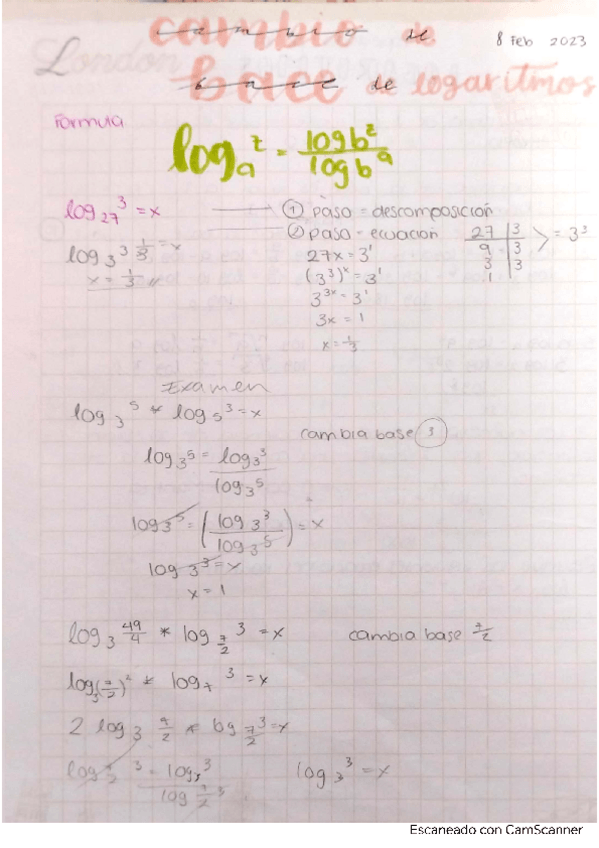 cambio de
8 Feb 2023
London
base de logaritmos
Formula
log_a^z = log b^z / log b^a
log_27^3 = x → ① paso = descomposición
② paso - ecuación
27 | 3
9 | 3
3 | 3
1
> = 3^3
log_3 3 1/3 = x
x = 1/3 //
27x = 3^1
(3^3)^x = 3^1
3^3x = 3^1
3x = 1
x = 1/3
Examen
log_3^5 * log_5^3 = x
cambia base ③
log_3^5 = log_3^3 / log_3^5
log_3^5 = (log_3^3 / log_3^5) = x
log_3^3 = x
x = 1
log_3 49/4 * log_7/2^3 = x
cambia base 7/2
log_3 (7/2)^2 * log_7^3 = x
2 log_3 7/2 * log_7/2^3 = x
log_3^3 = x
Escaneado con CamScanner